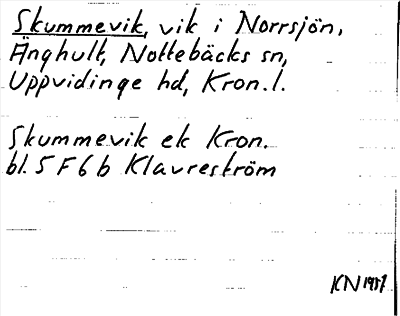 Skummevik, vik i Norrsjön,
Änghult, Nottebäcks sn,
Uppvidinge hd, Kron. l.
Skummevik ek Kron.
bl. 5 F 6 b Klavreström
KN 1937